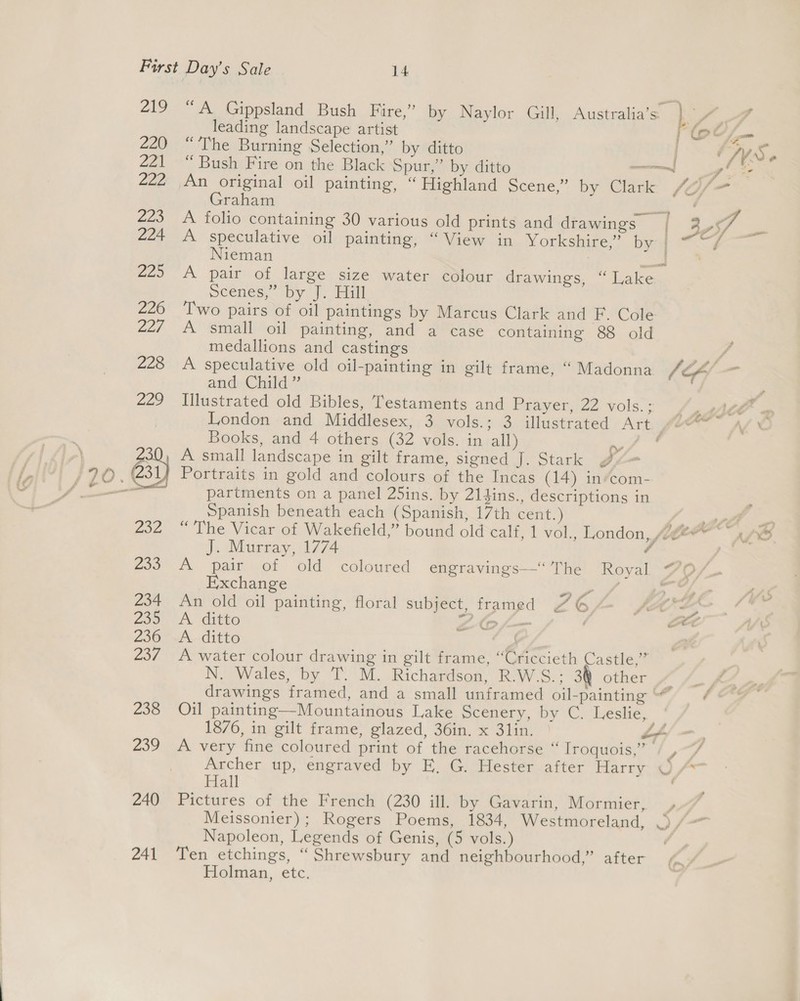 First Day's Sale 14
219 “A Gippsland Bush Fire,” by Naylor Gill, Australia's
leading landscape artist
220 “The Burning Selection,” by ditto
221 “Bush Fire on the Black Spur,” by ditto
222 An original oil painting, “Highland Scene,” by Clark
Graham
223 A folio containing 30 various old prints and drawings
224 A speculative oil painting, “View in Yorkshire,” by
Nieman
225 A pair of large size water colour drawings, “Lake
Scenes,” by J. Hill
226 Two pairs of oil paintings by Marcus Clark and F. Cole
227 A small oil painting, and a case containing 88 old
medallions and castings
228 A speculative old oil-painting in gilt frame, “Madonna
and Child”
229 Illustrated old Bibles, Testaments and Prayer, 22 vols.;
London and Middlesex, 3 vols.; 3 illustrated Art
Books, and 4 others (32 vols. in all)
230 A small landscape in gilt frame, signed J. Stark
231 Portraits in gold and colours of the Incas (14) in com-
partments on a panel 25ins. by 21½ins., descriptions in
Spanish beneath each (Spanish, 17th cent.)
232 “The Vicar of Wakefield,” bound old calf, 1 vol., London,
J. Murray, 1774
233 A pair of old coloured engravings—“The Royal
Exchange
234 An old oil painting, floral subject, framed 26/-
235 A ditto 26/-
236 A ditto
237 A water colour drawing in gilt frame, “Criccieth Castle,”
N. Wales, by T. M. Richardson, R.W.S.; 3 other
drawings framed, and a small unframed oil-painting
238 Oil painting—Mountainous Lake Scenery, by C. Leslie,
1876, in gilt frame, glazed, 36in. x 31in.
239 A very fine coloured print of the racehorse “Iroquois,”
Archer up, engraved by E. G. Hester after Harry
Hall
240 Pictures of the French (230 ill. by Gavarin, Mormier,
Meissonier); Rogers Poems, 1834, Westmoreland,
Napoleon, Legends of Genis, (5 vols.)
241 Ten etchings, “Shrewsbury and neighbourhood,” after
Holman, etc.